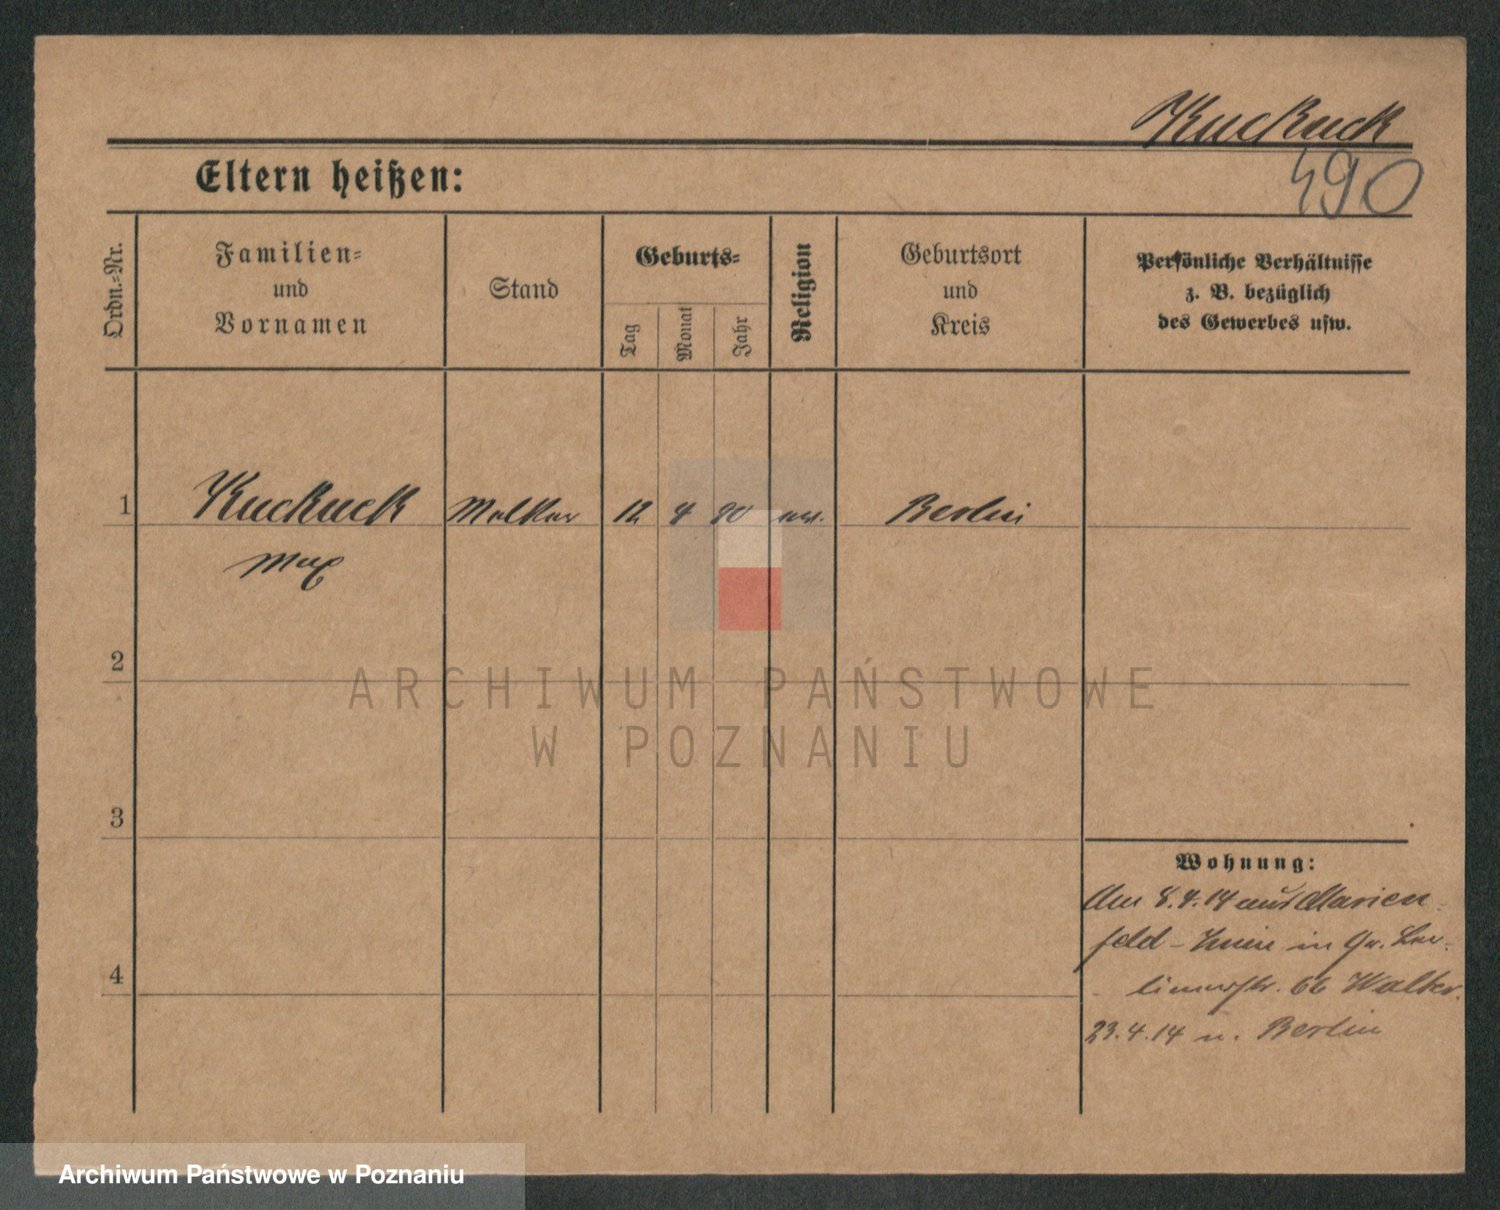 Kuckuck
490
Eltern heißen:
Ordn.-Nr.
Familien-
und
Vornamen
Stand
Geburts-
Tag
Monat
Jahr
Religion
Geburtsort
und
Kreis
Persönliche Verhältnisse
z. B. bezüglich
des Gewerbes usw.
1 Kuckuck Melker 12 4 90 ev. Berlin
Max
2
ARCHIWUM PAŃSTWOWE
W POZNANIU
3
Wohnung:
Am 8.4.14 aus Marien-
feld - in
4
66 Walter.
23.4.14 n. Berlin
Archiwum Państwowe w Poznaniu